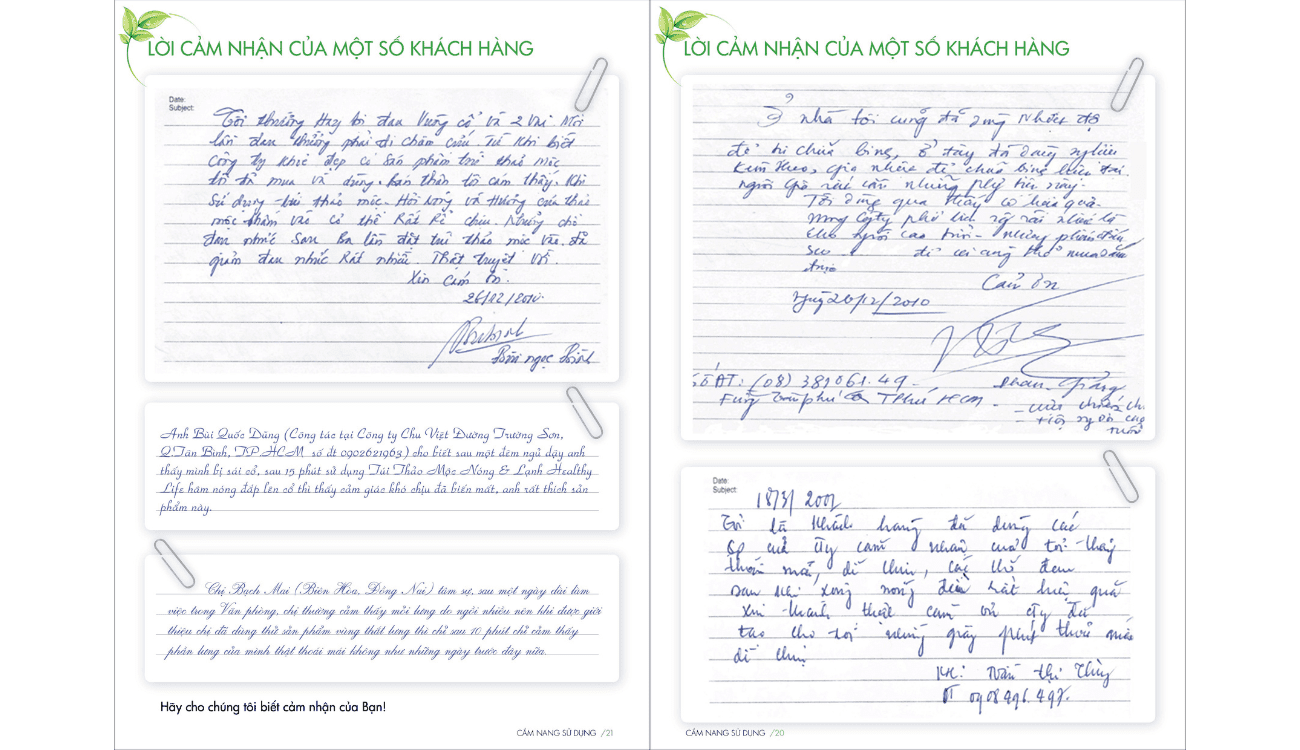 LỜI CẢM NHẬN CỦA MỘT SỐ KHÁCH HÀNG
Date:
Subject:
Tôi thường Hay bị đau Vương cổ và 2 Vai Mỗi
lần đau thường phải đi châm cứu, Từ Khi biết
Công ty Khoẻ đẹp có Sản phẩm túi thảo mộc
tôi đã mua và dùng. bản thân tôi cảm thấy. Khi
Sử dụng túi thảo mộc. Hơi nóng và Hương của thảo
mộc thấm vào cơ thể Rất Rễ chịu. Những chỗ
đau nhức Sau Ba lần đặt túi thảo mộc vào. đã
giảm đau nhức Rất nhiều. Thật tuyệt vời.
Xin Cám ơn.
26/12/2010.
Bùi ngọc
Anh Bùi Quốc Dũng (Công tác tại Công ty Chu Việt Đường Trường Sơn,
Q.Tân Bình, TP.HCM số đt 0902621963) cho biết sau một đêm ngủ dậy anh
thấy mình bị sái cổ, sau 15 phút sử dụng Túi Thảo Mộc Nóng & Lạnh Healthy
Life hâm nóng đắp lên cổ thì thấy cảm giác khó chịu đã biến mất, anh rất thích sản
phẩm này.
Chị Bạch Mai (Biên Hòa, Đồng Nai) tâm sự, sau một ngày dài làm
việc trong Văn phòng, chị thường cảm thấy mỏi lưng do ngồi nhiều nên khi được giới
thiệu chị đã dùng thử sản phẩm vùng thắt lưng thì chỉ sau 10 phút chị cảm thấy
phần lưng của mình thật thoải mái không như những ngày trước đây nữa.
Hãy cho chúng tôi biết cảm nhận của Bạn!
CẨM NANG SỬ DỤNG /21
LỜI CẢM NHẬN CỦA MỘT SỐ KHÁCH HÀNG
Ở nhà tôi cũng đã dùng nhiều
để trị chữa bệnh, ở đây đã dùng
người già rất cần những
Tôi dùng qua thấy có hiệu quả.
mong Cty phổ biến rộng rãi nhất là
cho người cao tuổi
để ai cũng thể mua
được
Cảm ơn
Ngày 26/12/2010
Số ĐT: (08) 381061.49
HCM
Date:
Subject:
18/3/2001
Tôi là khách hàng đã dùng các
sp của Cty cảm nhận của tôi thấy
thoải mái, dễ chịu,
sau khi xong nóng đều rất hiệu quả
xin thành thật cảm ơn cty đã
tạo cho tôi những giây phút thoải mái
dễ chịu
KH: Trần thị Thùy
ĐT 0908496.497.
CẨM NANG SỬ DỤNG /20